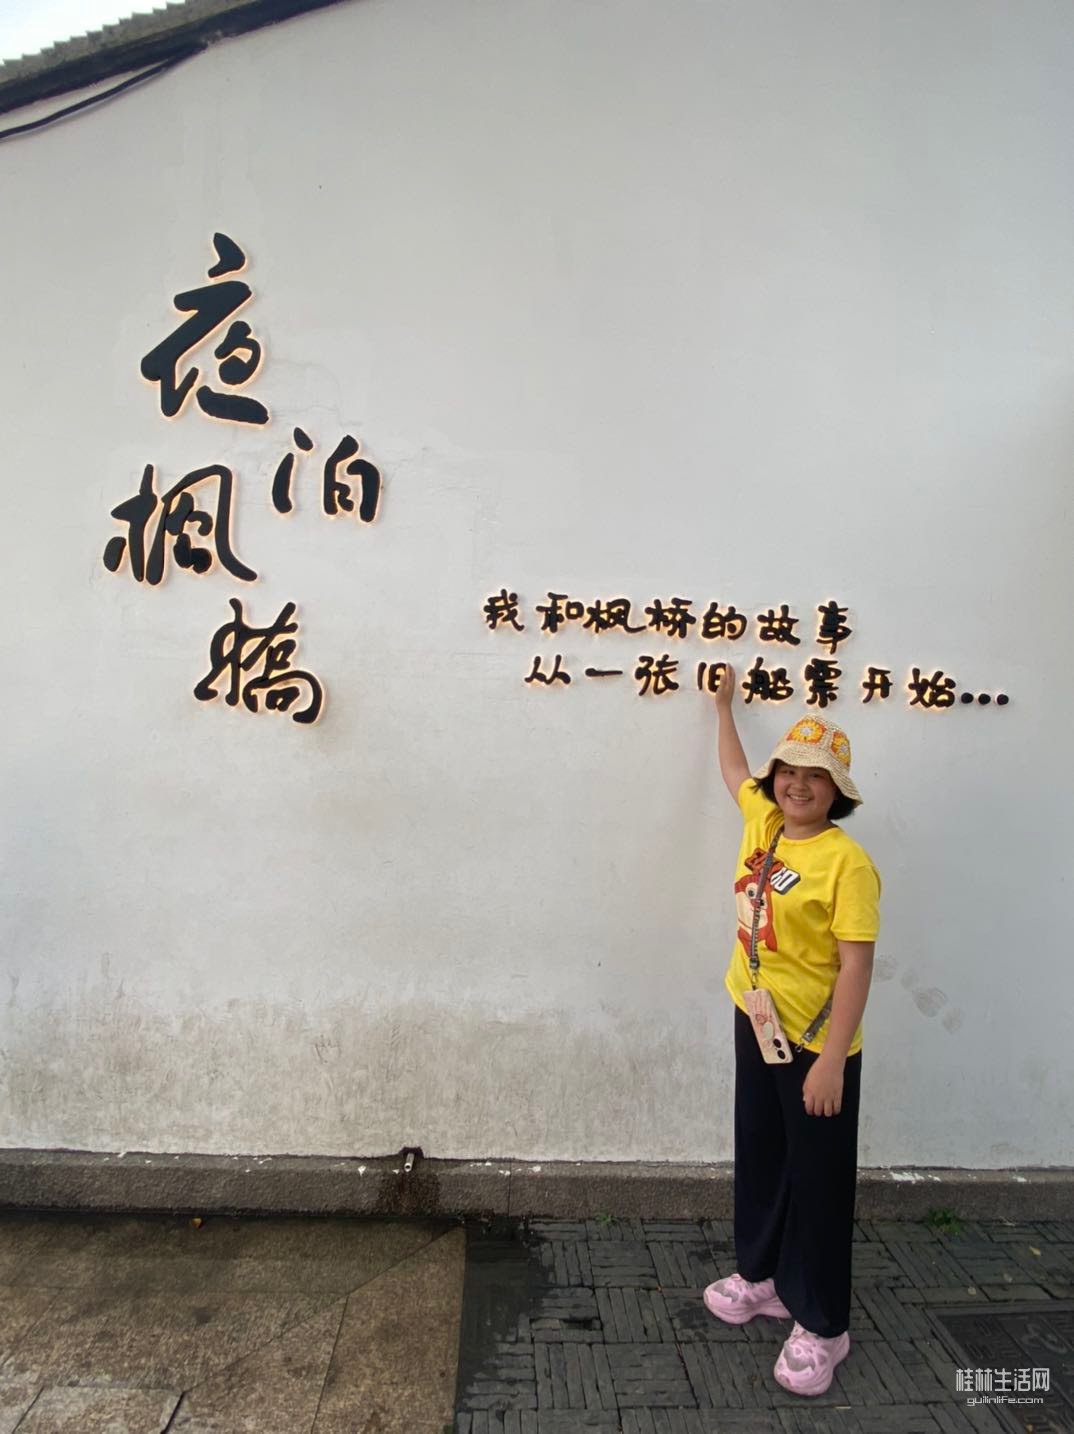 夜泊
枫橋
我和枫桥的故事
从一张旧船票开始...
桂林生活网
guilinlife.com